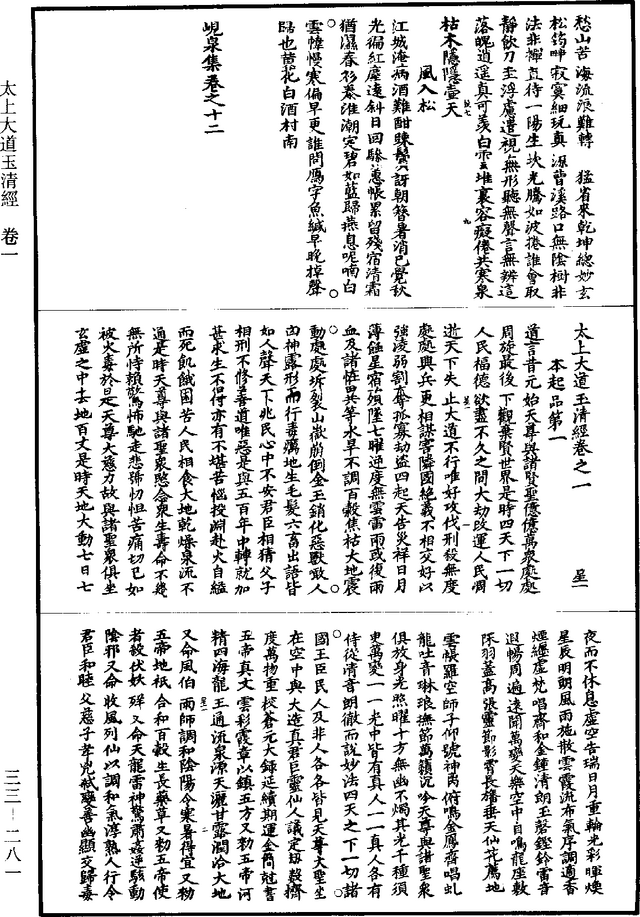 愁山苦海流浪難轉　猛省來乾坤總妙玄
松筠呻寂寞細玩真源曹溪路口無陰樹非
法非禪直待一陽生坎光騰如波捲誰會取
靜飲刀圭浮慮遣視無形聽無聲言無辨這
落魄逍遥真可羨白雲堆裏容癡倦共寒泉
枯木隱隱壺天
風入松
江城淹病酒難酣賖鬢訝朝簪暑消已覺秋
光徧紅塵遠斜日回驂蕙帳累留殘宿清霜
猶濕春衫泰淮潮定碧如藍歸燕息呢喃白
雲幃幔寒偏早更誰問鴈字魚緘早晚掉聲
歸也荳花白酒村南
峴泉集卷之十二
太上大道玉清經卷之一
本起品第一
道言昔元始天尊與諸賢聖億億萬衆處處
周旋最後下觀棄賢世界是時四天下一切
人民福德欲盡不久之間大劫改運人民凋
逝天下失正大道不行唯好攻伐刑殺無度
處處興兵更相謀害隣國絶義不相交好以
強凌弱割奪孤寡劫盜四起天告災祥日月
薄蝕星宿殞墜七曜逆度無雲雷雨或復雨
血及諸恠異共等水旱不調百穀焦枯大地震
動處處坼裂山嶽崩倒金玉銷化惡獸噉人
凶神露形而行毒癘地生毛髮六畜出語皆
如人聲天下兆民心中不安君臣相猜父子
相刑不修善道唯惡是與五百年中轉就加
甚求生不得亦有不堪苦惱投淵赴火自縊
而死飢餓困苦人民相食大地乾燥泉流不
通是時天尊與諸聖衆愍念衆生壽命不幾
無所恃賴驚怖馳走悲號忉怛苦痛切已如
被火毒於是天尊大慈力故與諸聖衆俱坐
玄虛之中去地百丈是時天地大動七日七
夜而不休息虛空告瑞日月重輪光彩暉煥
星辰明朗風雨施散雲霞流布氣序調適香
煙纏虛梵唱齊和金鍾清朗玉磬鏗鈴雷音
遐暢周遍遠聞萬變天樂空中自鳴龍座敷
床羽蓋高張靈節影霄長旛垂天仙花薦地
雲帳羅空師子仰號神禹俯鳴金鳳齊唱虬
龍吐音琳琅撫節萬籟沉吟天尊與諸聖衆
俱放身光照曜十方無幽不燭其光千種須
臾萬變一一光中皆有真人一一真人各有
侍從清音朗徹而說妙法四天之下一切諸
國王臣民人及非人各各皆見天尊大聖坐
在空中與大造真君巨靈仙人議定劫數擠
度萬物重校蒼元大錄延續期運金簡冠書
五帝真文雲彩霞章以鎮五方又勑五帝河
精四海龍王通流泉源天灑甘露潤洽大地
又命風伯雨師調和陰陽令寒暑得宜又勑
五帝地祇合和百穀生長藥草又勑五帝使
者殺伏妖孽又命天龍雷神驚肅姦逆駭動
陰邪又命收風列仙以調和氣淳熟人行令
君臣和睦父慈子孝兇弒變善幽顯交歸毒
太上大道玉清經　卷一
三三—二八一